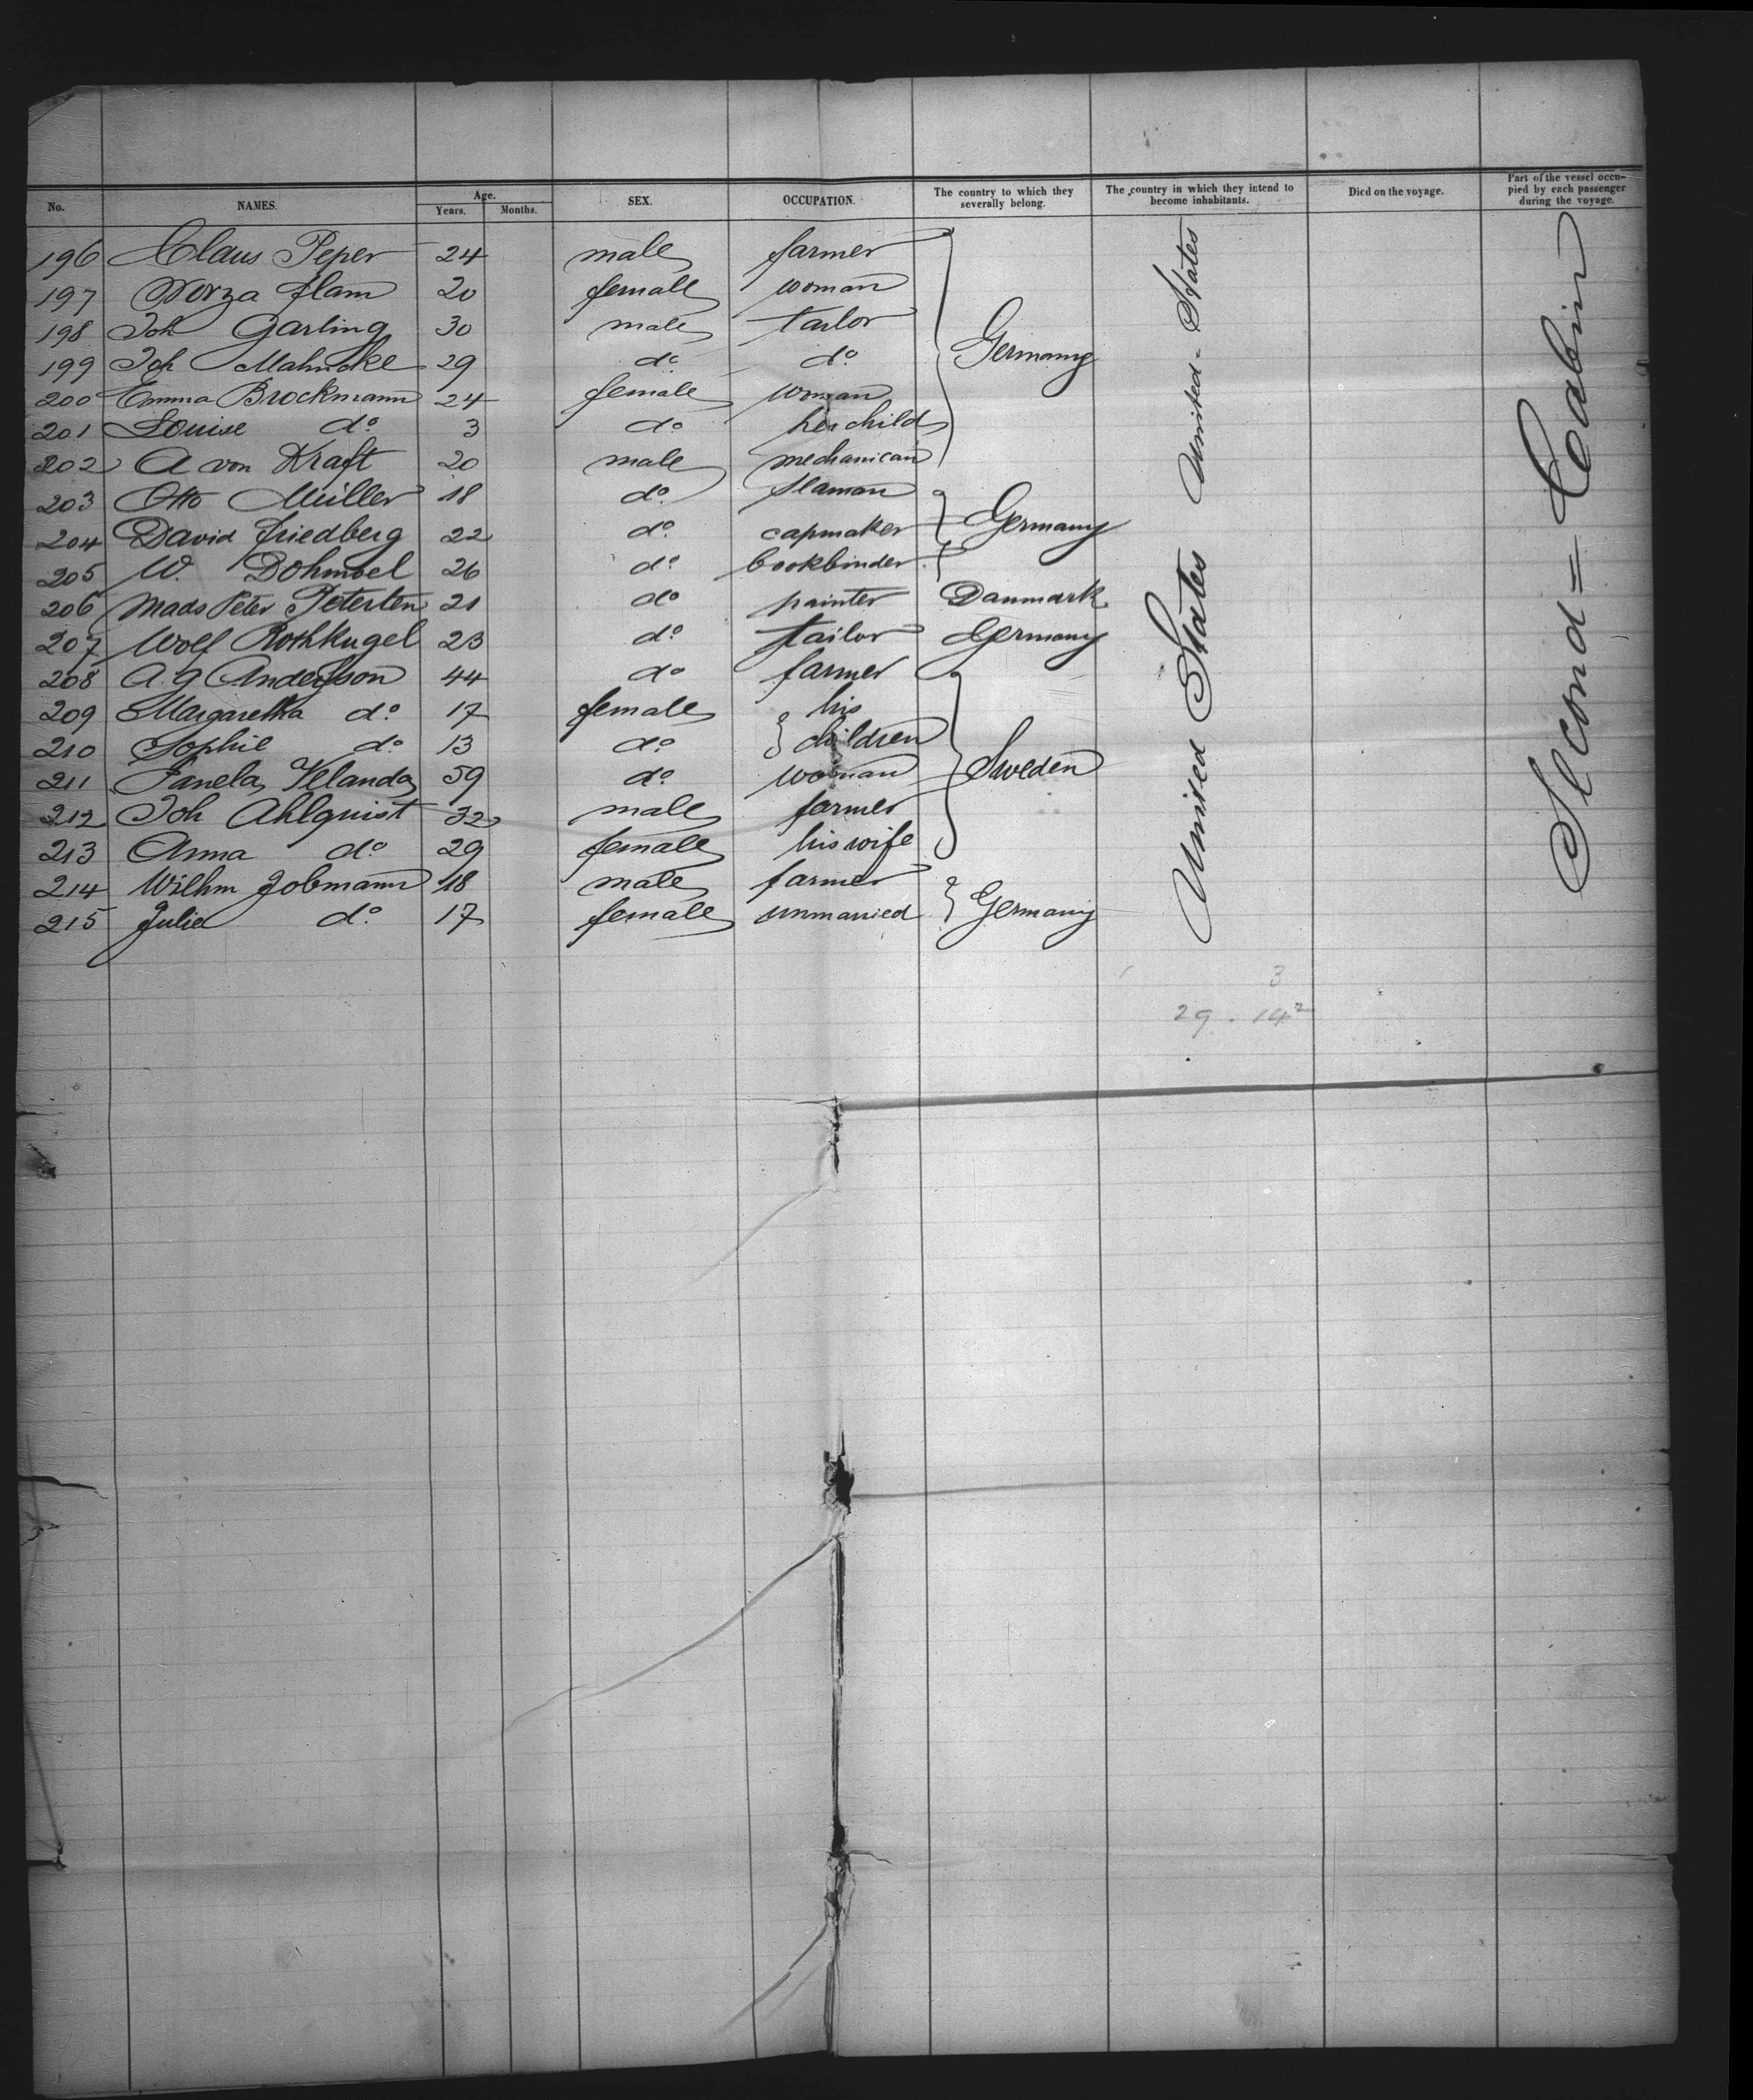 No. NAMES. Age. Years. Months. SEX. OCCUPATION. The country to which they severally belong. The country in which they intend to become inhabitants. Died on the voyage. Part of the vessel occupied by each passenger during the voyage.
196 Claus Peper 24 male farmer
197 Flam 20 female woman
198 Joh Garling 30 male tailor
199 Joh Mahncke 29 do do Germany
200 Emma Brockmann 24 female woman
201 Louise do 3 do her child
202 A von Kraft 20 male mechanican
203 Otto Müller 18 do seaman
204 David Friedberg 22 do capmaker Germany
205 W. 26 do bookbinder
206 Mads Peter Petersen 21 do painter Danmark
207 Wolf Rothkugel 23 do tailor Germany
208 A. G. Andersson 44 do farmer
209 Margaretha do 17 female his
210 Sophie do 13 do children
211 59 do woman Sweden
212 Joh Ahlquist 32 male farmer
213 Anna do 29 female his wife
214 Wilhm Jobmann 18 male farmer
215 Julia do 17 female unmarried Germany
United States United-States
Second=Cabin
3
29.